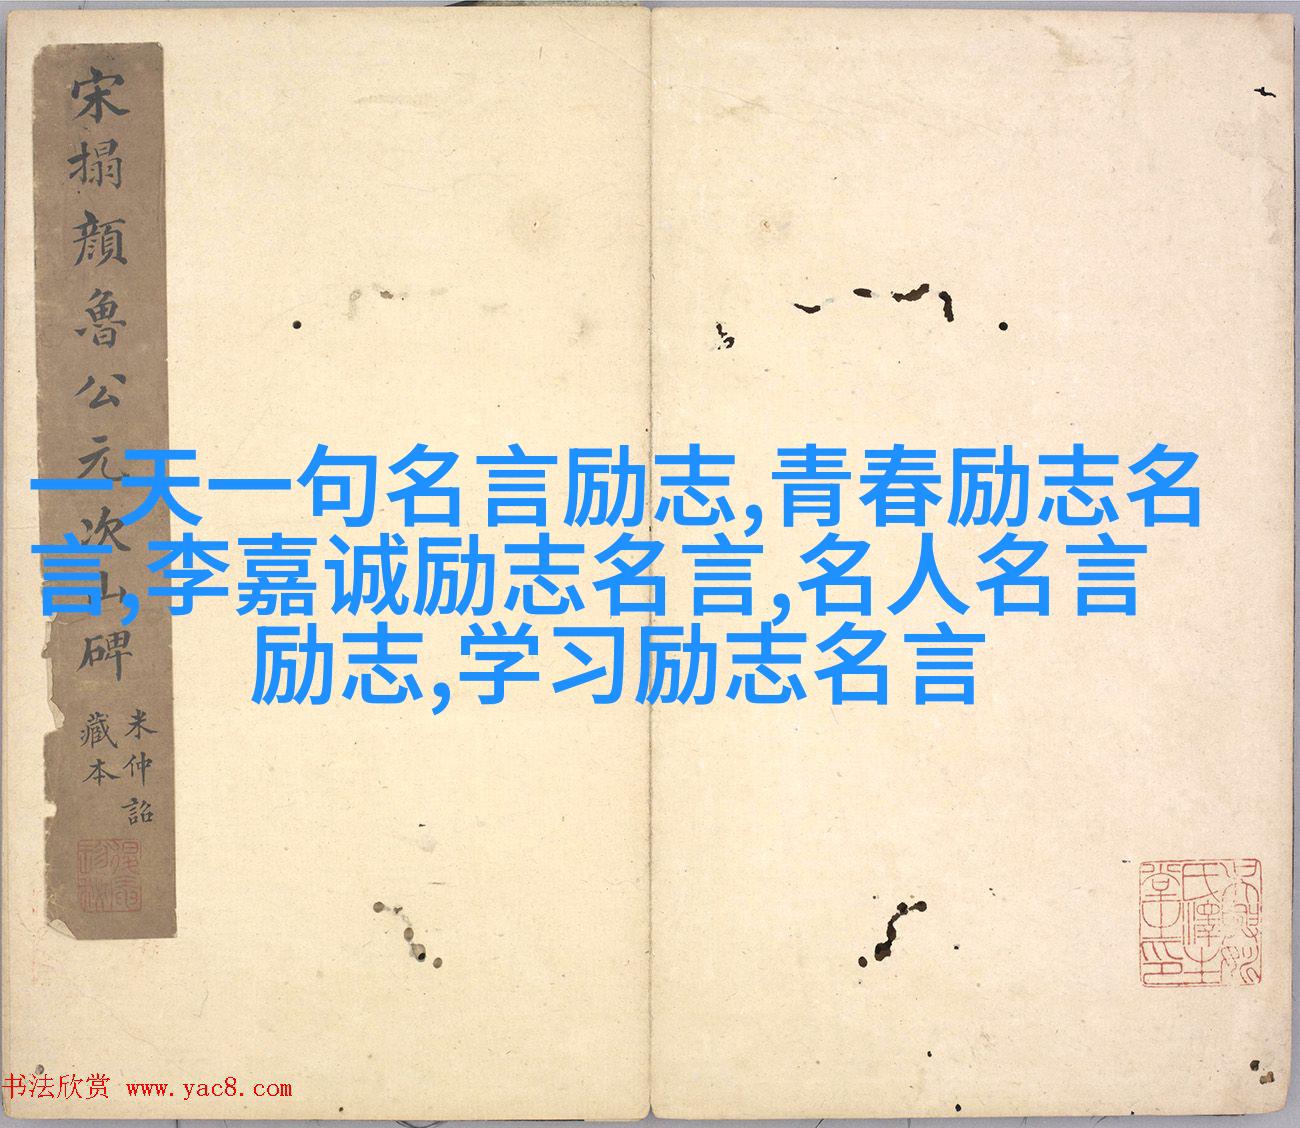 宋搨顔魯公元次山碑
米仲詔
藏本
一天一句名言励志,青春励志名
言,李嘉诚励志名言,名人名言
励志,学习励志名言
书法欣赏 www.yac8.com